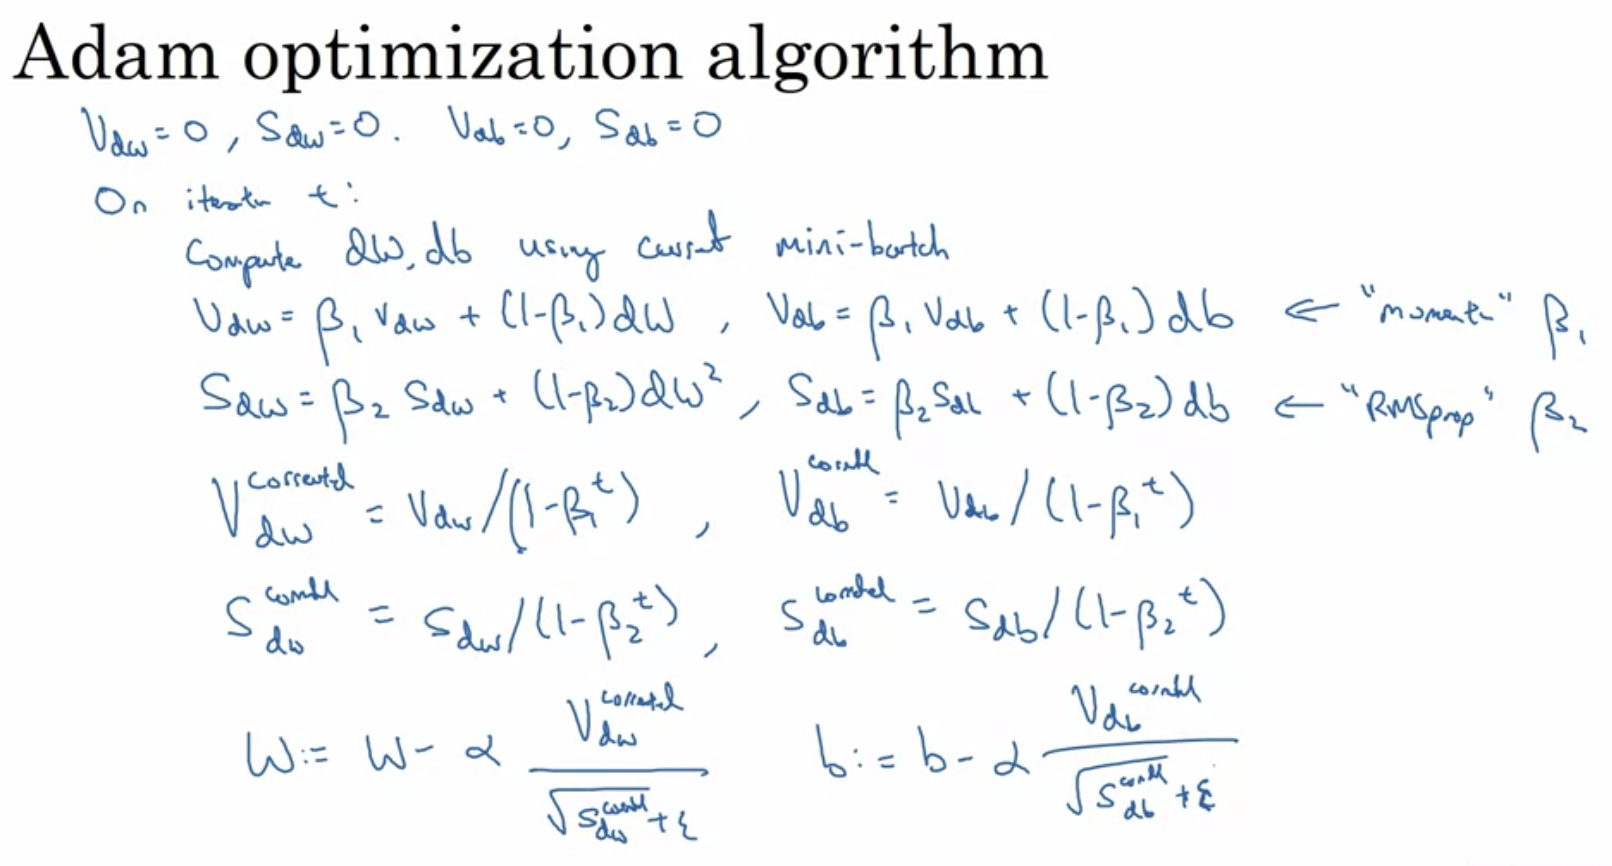 Adam optimization algorithm
V_dw = 0, S_dw = 0. V_db = 0, S_db = 0
On iteration t:
Compute dW, db using current mini-batch
V_dw = β₁ V_dw + (1-β₁) dW, V_db = β₁ V_db + (1-β₁) db ← "momentum" β₁
S_dw = β₂ S_dw + (1-β₂) dW², S_db = β₂ S_db + (1-β₂) db ← "RMSprop" β₂
V_dw^corrected = V_dw / (1-β₁^t), V_db^corrected = V_db / (1-β₁^t)
S_dw^corrected = S_dw / (1-β₂^t), S_db^corrected = S_db / (1-β₂^t)
W := W - α V_dw^corrected / (√S_dw^corrected + ε) b := b - α V_db^corrected / (√S_db^corrected + ε)